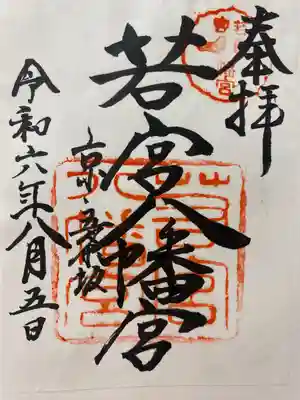 奉拝
若宮八幡宮
京・五条坂
令和六年八月五日